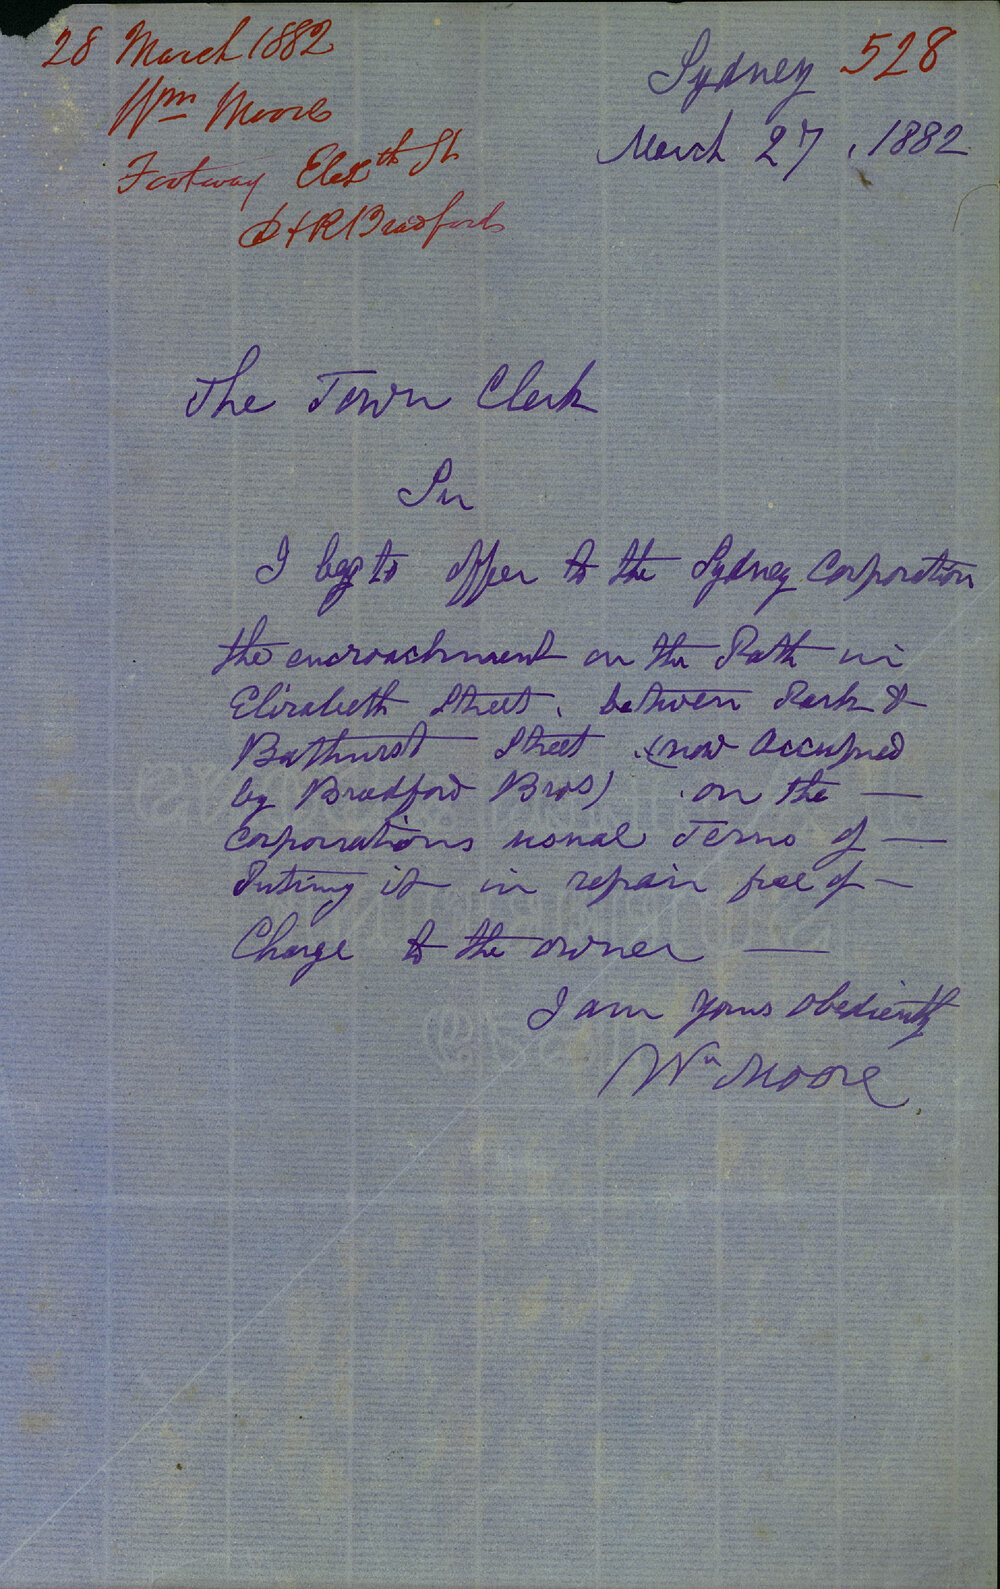 28 March 1882
Wm Moore
Footway Elizth St
Sydney 528
March 27, 1882
The Town Clerk
Sir
I beg to offer to the Sydney Corporation
the encroachment on the Path in
Elizabeth Street, between Park &
Bathurst Street (now Occupied
by Bradford Bros) on the —
corporations usual Terms of —
Puting it in repair free of —
Charge to the owner —
I am yours obediently
Wm Moore